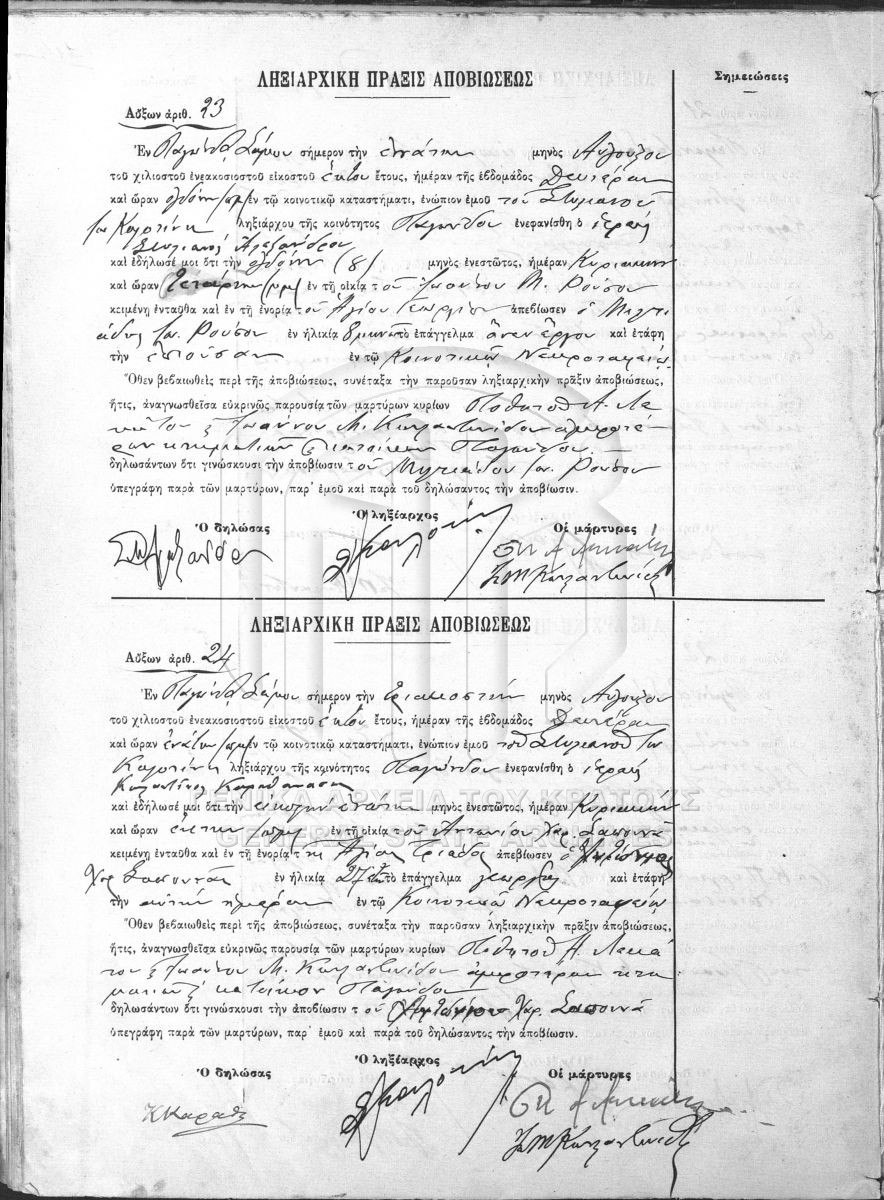 ΛΗΞΙΑΡΧΙΚΗ ΠΡΑΞΙΣ ΑΠΟΒΙΩΣΕΩΣ
Σημειώσεις
Αὔξων ἀριθ. 23
Ἐν Παγώνδᾳ Σάμου σήμερον τὴν ἐνάτην μηνὸς Αὐγούστου
τοῦ χιλιοστοῦ ἐνεακοσιοστοῦ εἰκοστοῦ ἕκτου ἔτους, ἡμέραν τῆς ἑβδομάδος Δευτέραν
καὶ ὥραν ὀγδόην (πμ) ἐν τῷ κοινοτικῷ καταστήματι, ἐνώπιον ἐμοῦ τοῦ Στυλιανοῦ
ληξιάρχου τῆς κοινότητος Παγώνδου ἐνεφανίσθη ὁ ἱερεὺς
Στυλιανὸς Ἀλεξάνδρου
καὶ ἐδήλωσέ μοι ὅτι τὴν ὀγδόην (8) μηνὸς ἐνεστῶτος, ἡμέραν Κυριακὴν
καὶ ὥραν τετάρτην ἐν τῇ οἰκίᾳ τοῦ Ἰωάννου Μ. Ρούσου
κειμένῃ ἐνταῦθα καὶ ἐν τῇ ἐνορίᾳ τοῦ Ἁγίου Γεωργίου ἀπεβίωσεν ὁ Μιλτι
άδης Ἰω. Ρούσου ἐν ἡλικίᾳ 8 μηνῶν τὸ ἐπάγγελμα ἄνευ ἔργου καὶ ἐτάφη
τὴν ἐπιοῦσαν ἐν τῷ Κοινοτικῷ Νεκροταφείῳ.
Ὅθεν βεβαιωθεὶς περὶ τῆς ἀποβιώσεως, συνέταξα τὴν παροῦσαν ληξιαρχικὴν πρᾶξιν ἀποβιώσεως,
ἥτις, ἀναγνωσθεῖσα εὐκρινῶς παρουσίᾳ τῶν μαρτύρων κυρίων Ποθητοῦ Α. Λε
κάτου & Ἰωάννου Μ. Κωνσταντινίδου ἀμφοτέ
ρων κτηματιῶν & κατοίκων Παγώνδου
δηλωσάντων ὅτι γινώσκουσι τὴν ἀποβίωσιν τοῦ Μιλτιάδου Ἰω. Ρούσου
ὑπεγράφη παρὰ τῶν μαρτύρων, παρ' ἐμοῦ καὶ παρὰ τοῦ δηλώσαντος τὴν ἀποβίωσιν.
Ὁ δηλώσας Ὁ ληξίαρχος Οἱ μάρτυρες
ΛΗΞΙΑΡΧΙΚΗ ΠΡΑΞΙΣ ΑΠΟΒΙΩΣΕΩΣ
Αὔξων ἀριθ. 24
Ἐν Παγώνδᾳ Σάμου σήμερον τὴν τριακοστὴν μηνὸς Αὐγούστου
τοῦ χιλιοστοῦ ἐνεακοσιοστοῦ εἰκοστοῦ ἕκτου ἔτους, ἡμέραν τῆς ἑβδομάδος Δευτέραν
καὶ ὥραν ἐνάτην (πμ) ἐν τῷ κοινοτικῷ καταστήματι, ἐνώπιον ἐμοῦ τοῦ Στυλιανοῦ Ἰω
ληξιάρχου τῆς κοινότητος Παγώνδου ἐνεφανίσθη ὁ ἱερεὺς
Κωνσταντῖνος Καραθανάσης
ΓΕΝΙΚΑ ΑΡΧΕΙΑ ΤΟΥ ΚΡΑΤΟΥΣ
καὶ ἐδήλωσέ μοι ὅτι τὴν εἰκοστὴν ἐνάτην μηνὸς ἐνεστῶτος, ἡμέραν Κυριακὴν
GENERAL STATE ARCHIVES
καὶ ὥραν ἕκτην ἐν τῇ οἰκίᾳ τοῦ Ἀντωνίου Χαρ. Σαπουνᾶ
κειμένῃ ἐνταῦθα καὶ ἐν τῇ ἐνορίᾳ τῆς Ἁγίας Τριάδος ἀπεβίωσεν ὁ Ἀντώνιος
Χαρ Σαπουνᾶς ἐν ἡλικίᾳ 27 τὸ ἐπάγγελμα γεωργὸς καὶ ἐτάφη
τὴν αὐτὴν ἡμέραν ἐν τῷ Κοινοτικῷ Νεκροταφείῳ
Ὅθεν βεβαιωθεὶς περὶ τῆς ἀποβιώσεως, συνέταξα τὴν παροῦσαν ληξιαρχικὴν πρᾶξιν ἀποβιώσεως,
ἥτις, ἀναγνωσθεῖσα εὐκρινῶς παρουσίᾳ τῶν μαρτύρων κυρίων Ποθητοῦ Α. Λεκά
του & Ἰωάννου Μ. Κωνσταντινίδου ἀμφοτέρων κτη
ματιῶν & κατοίκων Παγώνδου
δηλωσάντων ὅτι γινώσκουσι τὴν ἀποβίωσιν τοῦ Ἀντωνίου Χαρ. Σαπουνᾶ
ὑπεγράφη παρὰ τῶν μαρτύρων, παρ' ἐμοῦ καὶ παρὰ τοῦ δηλώσαντος τὴν ἀποβίωσιν.
Ὁ δηλώσας Ὁ ληξίαρχος Οἱ μάρτυρες